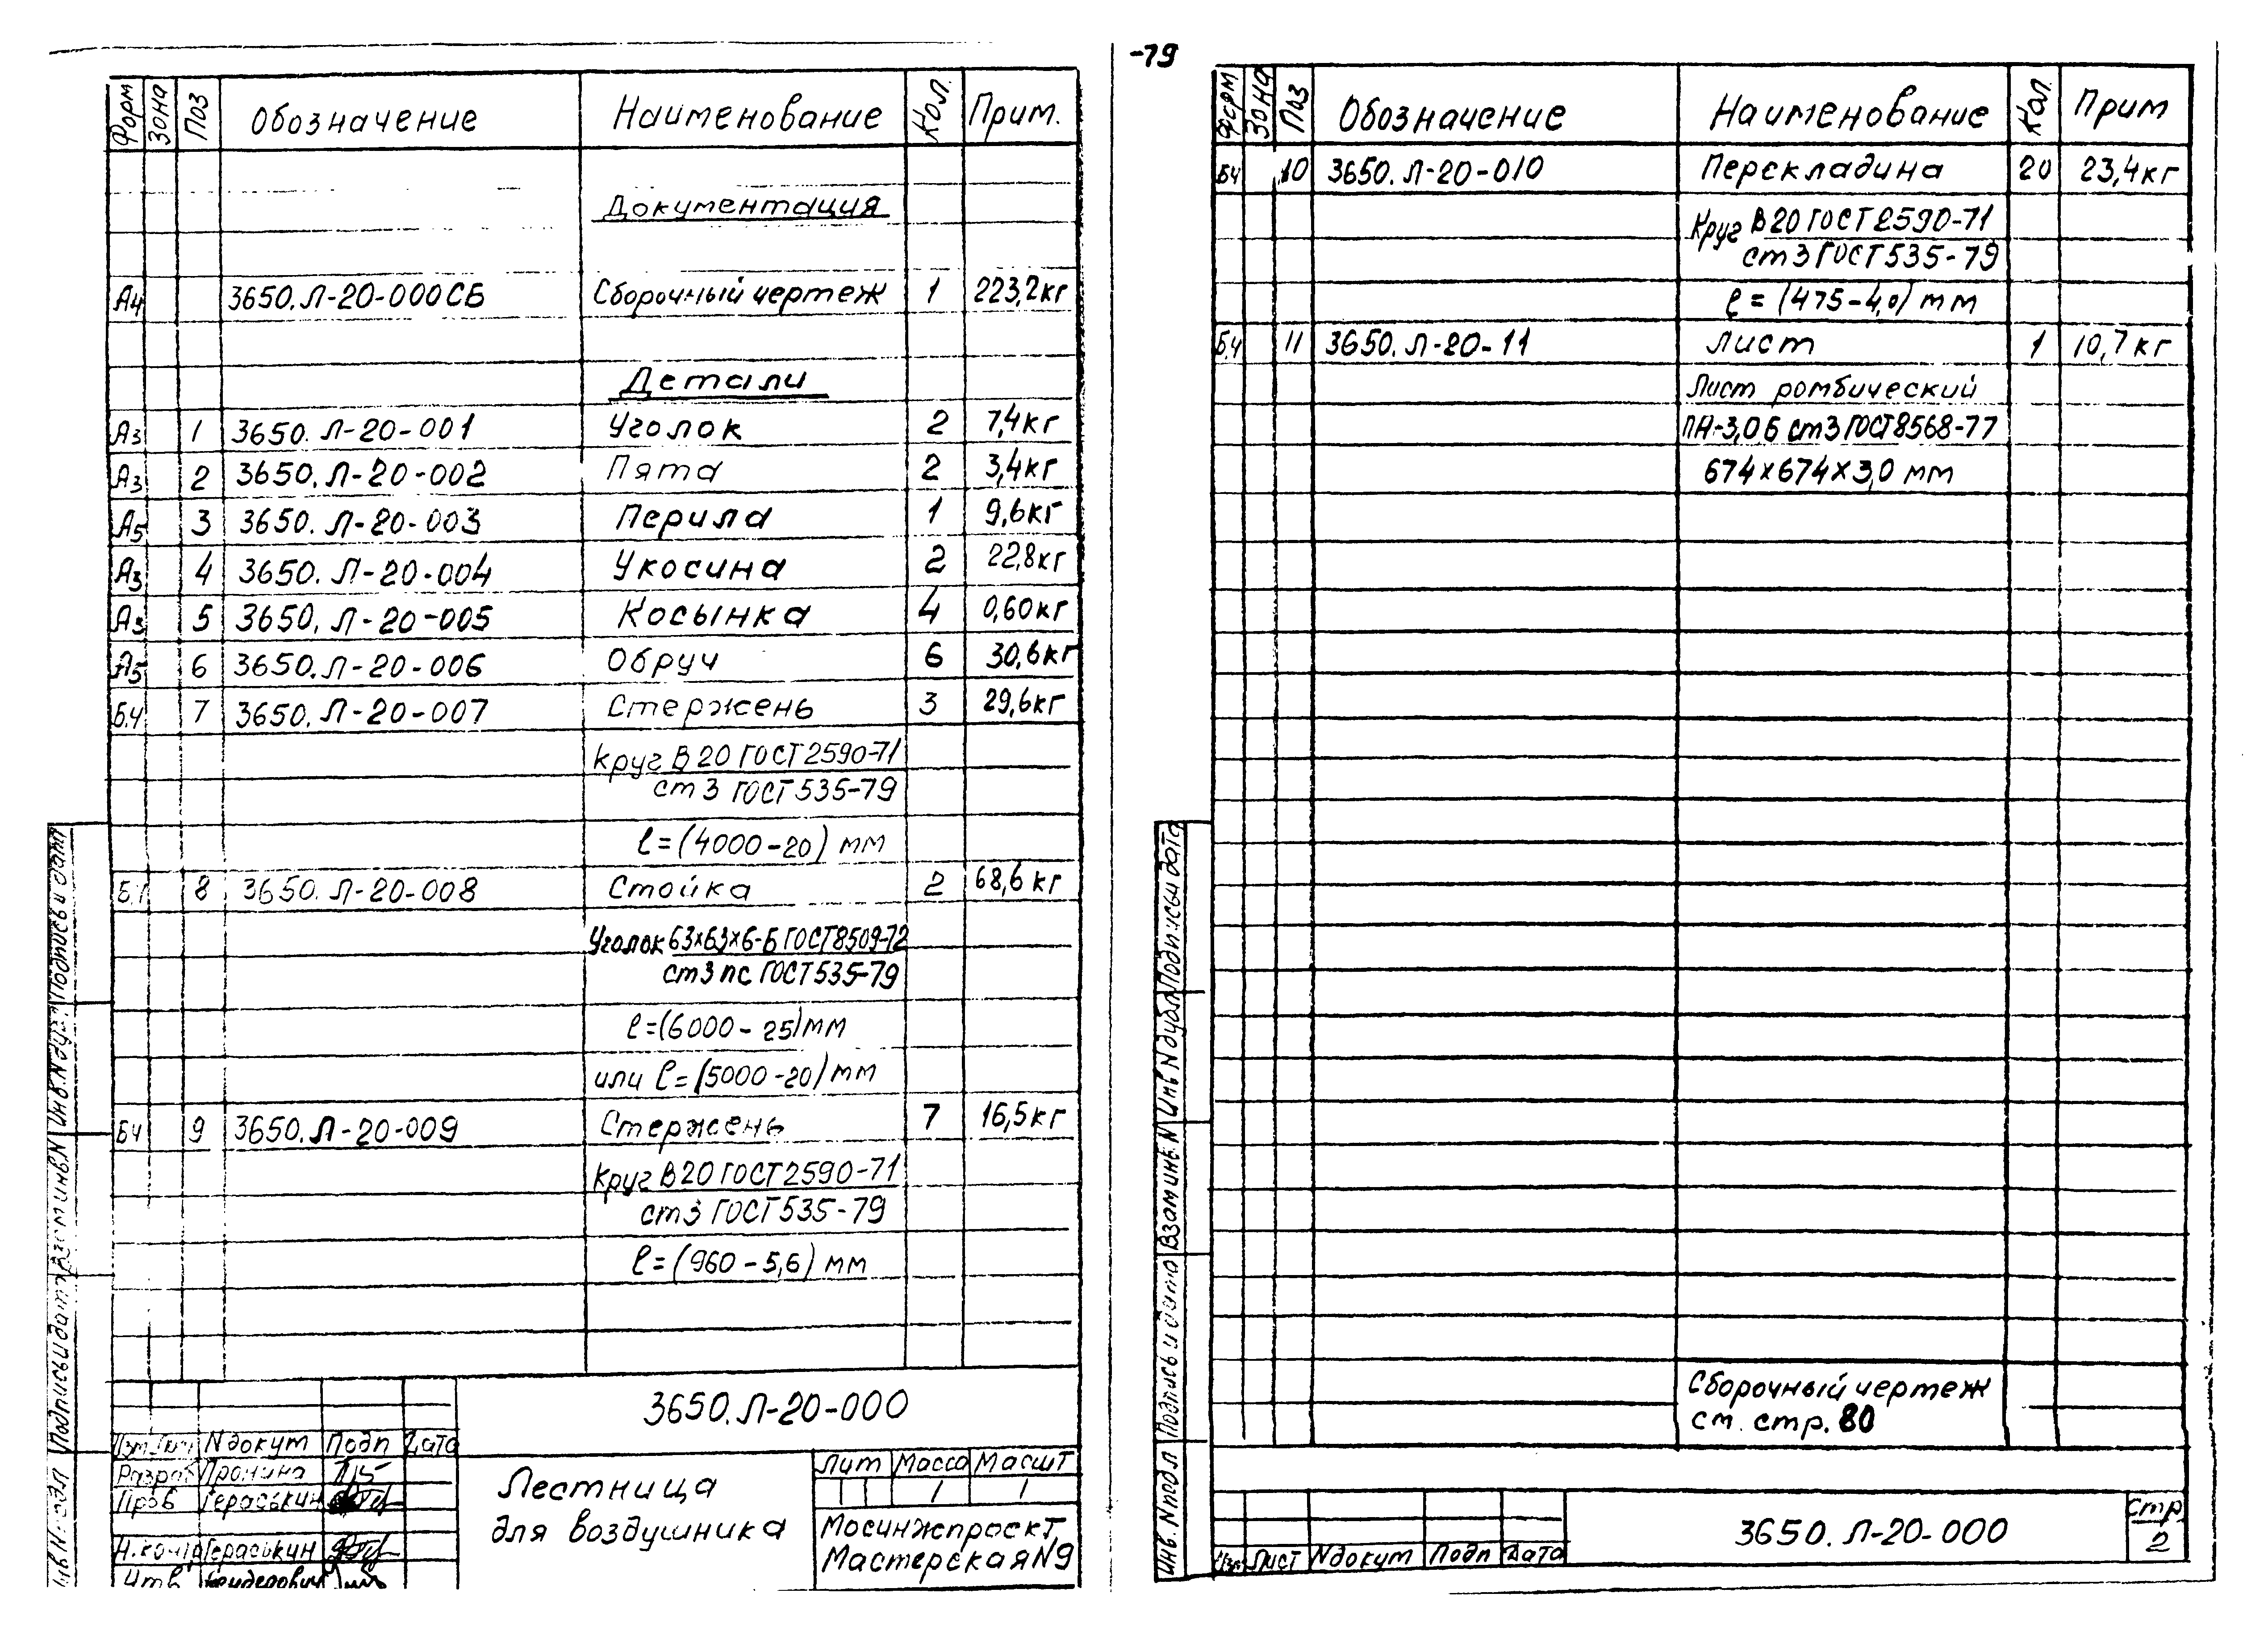 -79
Форм Зона Поз Обозначение Наименование Кол. Прим.
Документация
А4 3650.Л-20-000СБ Сборочный чертеж 1 223,2кг
Детали
А3 1 3650.Л-20-001 Уголок 2 7,4кг
А3 2 3650.Л-20-002 Пята 2 3,4кг
А5 3 3650.Л-20-003 Перила 1 9,6кг
А3 4 3650.Л-20-004 Укосина 2 22,8кг
А3 5 3650.Л-20-005 Косынка 4 0,60кг
А5 6 3650.Л-20-006 Обруч 6 30,6кг
Б.Ч 7 3650.Л-20-007 Стержень 3 29,6кг
Круг В20 ГОСТ2590-71
ст3 ГОСТ535-79
ℓ=(4000-20) мм
8 3650.Л-20-008 Стойка 2 68,6кг
Уголок 63х63х6-Б ГОСТ8509-72
ст3пс ГОСТ535-79
ℓ=(6000-25)мм
или ℓ=(5000-20)мм
БЧ 9 3650.Л-20-009 Стержень 7 16,5кг
Круг В20 ГОСТ2590-71
ст3 ГОСТ535-79
ℓ=(960-5,6) мм
3650.Л-20-000
Nдокум Подп Дата
Разраб Пронина
Пров Гераськин
Н.контр Гераськин
Утв
Лестница
для воздушника
Лит Масса Масшт
Мосинжпроект
Мастерская N9
Подпись и дата
Взам инв.N
Подпись и дата
Форм Зона Поз Обозначение Наименование Кол. Прим
БЧ 10 3650.Л-20-010 Перекладина 20 23,4кг
Круг В20 ГОСТ2590-71
ст3 ГОСТ535-79
ℓ=(475-4,0) мм
Б.Ч 11 3650.Л-20-11 Лист 1 10,7кг
Лист ромбический
ПН-3,0Б ст3 ГОСТ8568-77
674х674х3,0 мм
Сборочный чертеж
см. стр. 80
Изм Лист Nдокум Подп Дата
3650.Л-20-000
Стр
2
Подпись и дата
Инв N дубл
Взам инв. N
Подпись и дата
Инв. N подл